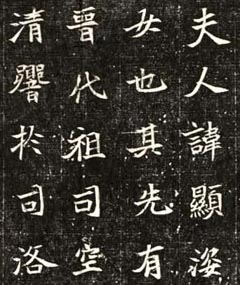 夫人諱顯姿
女也其先有
晉代祖司空
清響於司洛